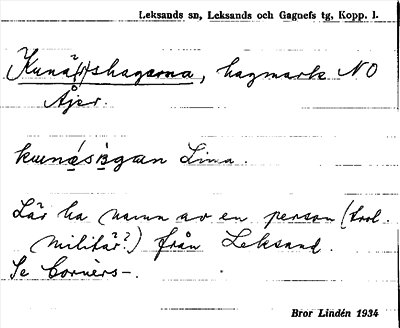 Leksands sn, Leksands och Gagnefs tg, Kopp. l.
Kunä(r)shagarna, hagmark NO
Åjer.
Lima.
Lär ha namn av en person (trol.
militär?) från Leksand.
Se Cornèrs-.
Bror Lindén 1934